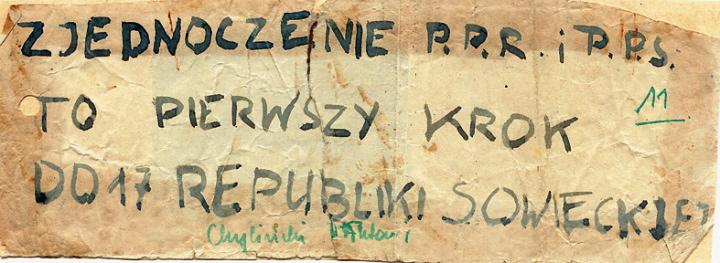 ZJEDNOCZENIE P.P.R. i P.P.S.
TO PIERWSZY KROK
11
DO 17 REPUBLIKI SOWIECKIEJ
Antoni